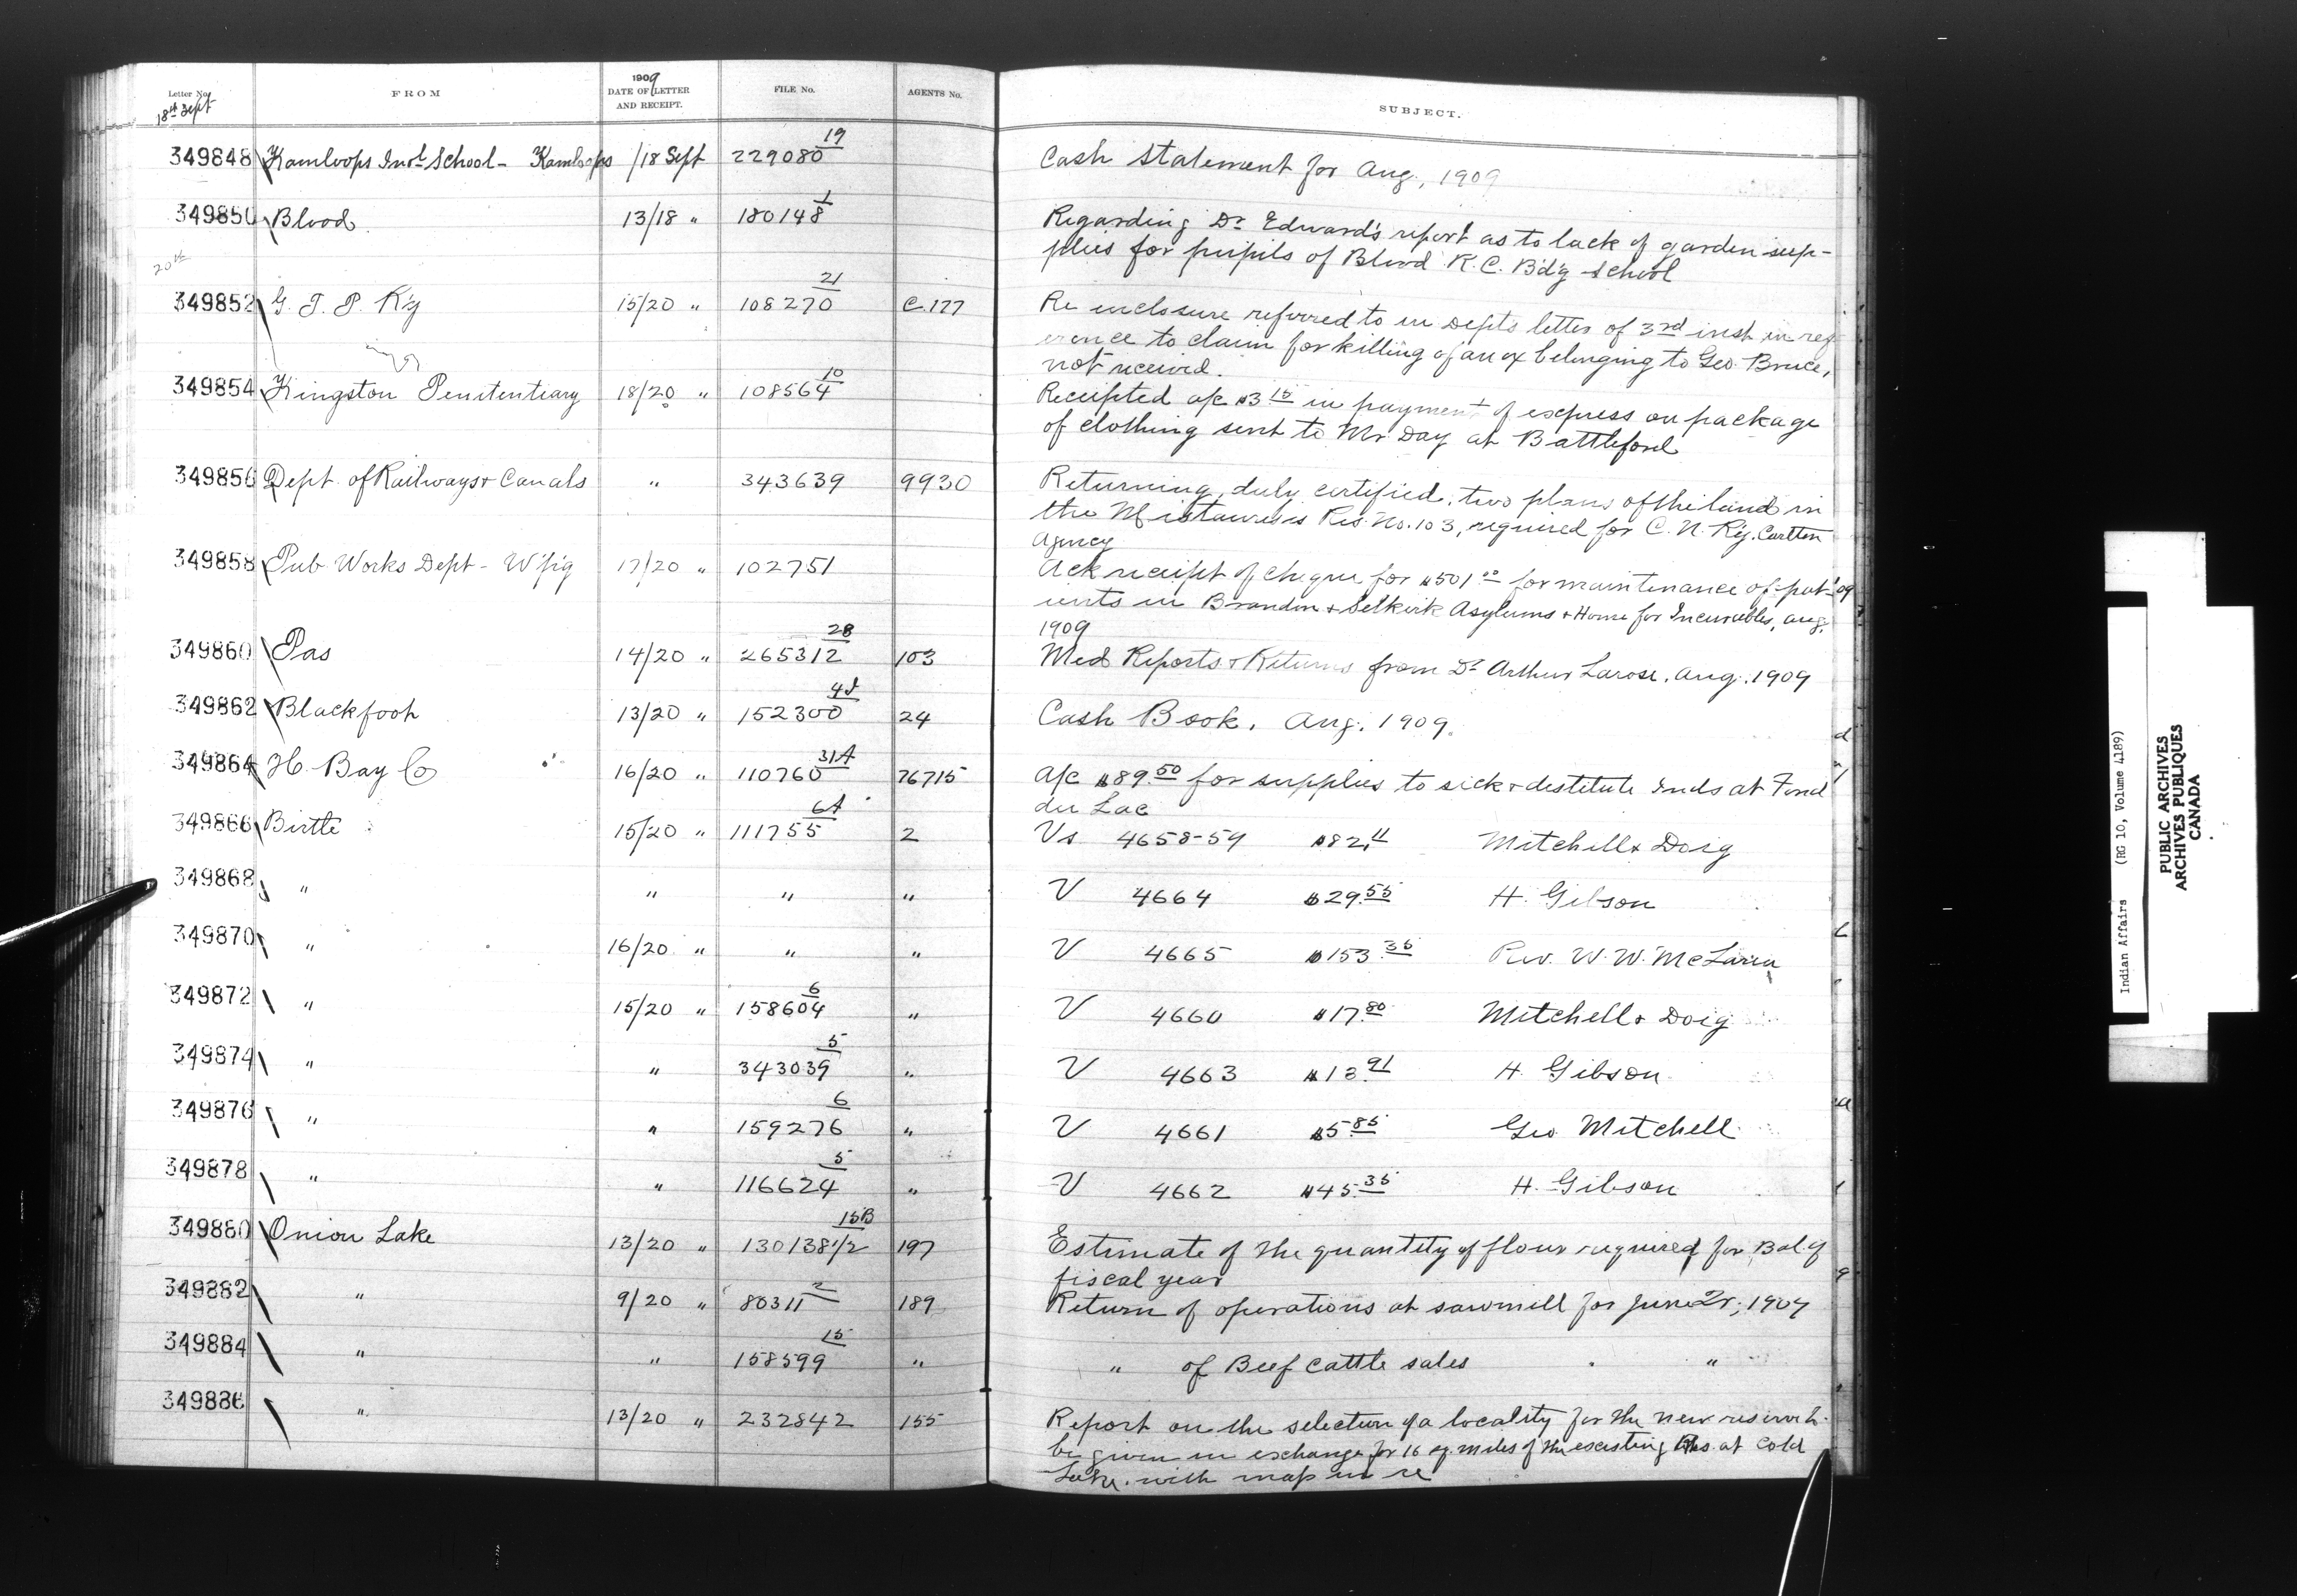 Letter No. FROM 1909 DATE OF LETTER AND RECEIPT. FILE No. AGENTS No. SUBJECT.
18th Sept
349848 Kamloops Indl School - Kamloops /18 Sept 229080 19 Cash Statement for Aug., 1909
349850 Blood. 13/18 " 180148 1 Regarding Dr Edward's report as to lack of garden sup-
plies for pupils of Blood R.C. Bd'g School
20th
349852 G. T. P. R'y 15/20 " 108270 21 C.177 Re inclosure referred to in Depts letter of 3rd inst in ref
erence to claim for killing of an ox belonging to Geo. Bruce,
not received.
349854 Kingston Penitentiary 18/20 " 108564 10 Receipted a/c $3.15 in payment of express on package
of clothing sent to Mr Day at Battleford
349856 Dept. of Railways & Canals " 343639 9930 Returning, duly certified, two plans of the land in
the Res. No. 103, required for C. N. R'y. Carlton
Agency
349858 Pub Works Dept - W'p'g 17/20 " 102751 Ack receipt of cheque for $501.00 for maintenance of pat-
ients in Brandon & Selkirk Asylums & Home for Incurables, Aug.
1909
349860 Pas 14/20 " 265312 28 103 Med Reports & Returns from Dr Arthur Larose, Aug. 1909
349862 Blackfoot 13/20 " 152300 24 Cash Book. Aug. 1909.
349864 H. Bay Co 16/20 " 110760 31A 76715 A/c $89.50 for supplies to sick & destitute Inds at Fond
du Lac
349866 Birtle 15/20 " 111755 6A 2 Vs 4658-59 $82.11 Mitchell & Doig
349868 " " " " V 4664 $29.55 H. Gibson
349870 " 16/20 " " " V 4665 $153.35 Rev. W. W. McLaren
349872 " 15/20 " 158604 6 " V 4660 $17.80 Mitchell & Doig
349874 " " 343039 5 " V 4663 $13.91 H. Gibson
349876 " " 159276 6 " V 4661 $5.85 Geo Mitchell
349878 " " 116624 5 " V 4662 $45.35 H. Gibson
349880 Onion Lake 13/20 " 130138 1/2 15B 197 Estimate of the quantity of flour required for Bal. of
fiscal year
349882 " 9/20 " 80311 2 189 Return of operations at sawmill for June Qr., 1909
349884 " " 158599 15 " " of Beef cattle sales "
349886 " 13/20 " 232842 155 Report on the selection of a locality for the new reserve to
be given in exchange for 16 sq. miles of the existing Res. at Cold
Lake. with map in re
Indian Affairs (RG 10, Volume 4189)
PUBLIC ARCHIVES
ARCHIVES PUBLIQUES
CANADA